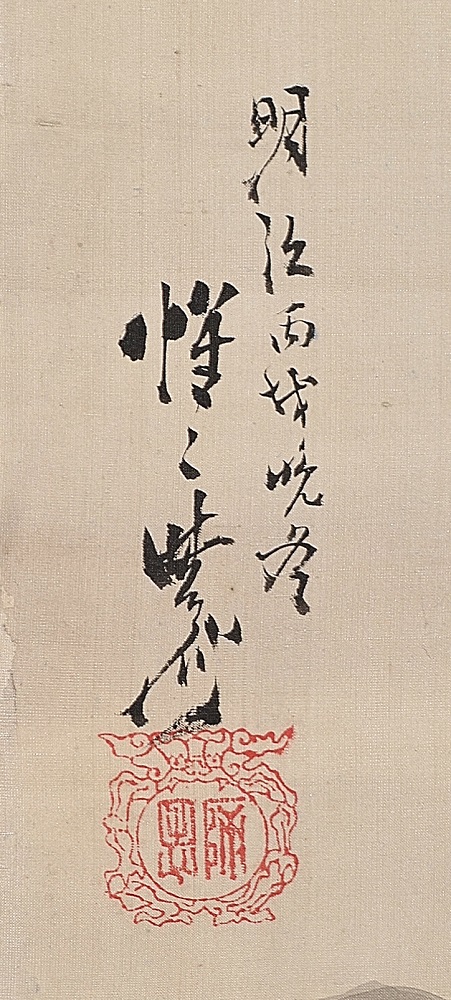 明治丙戌晩冬
惺々暁斎